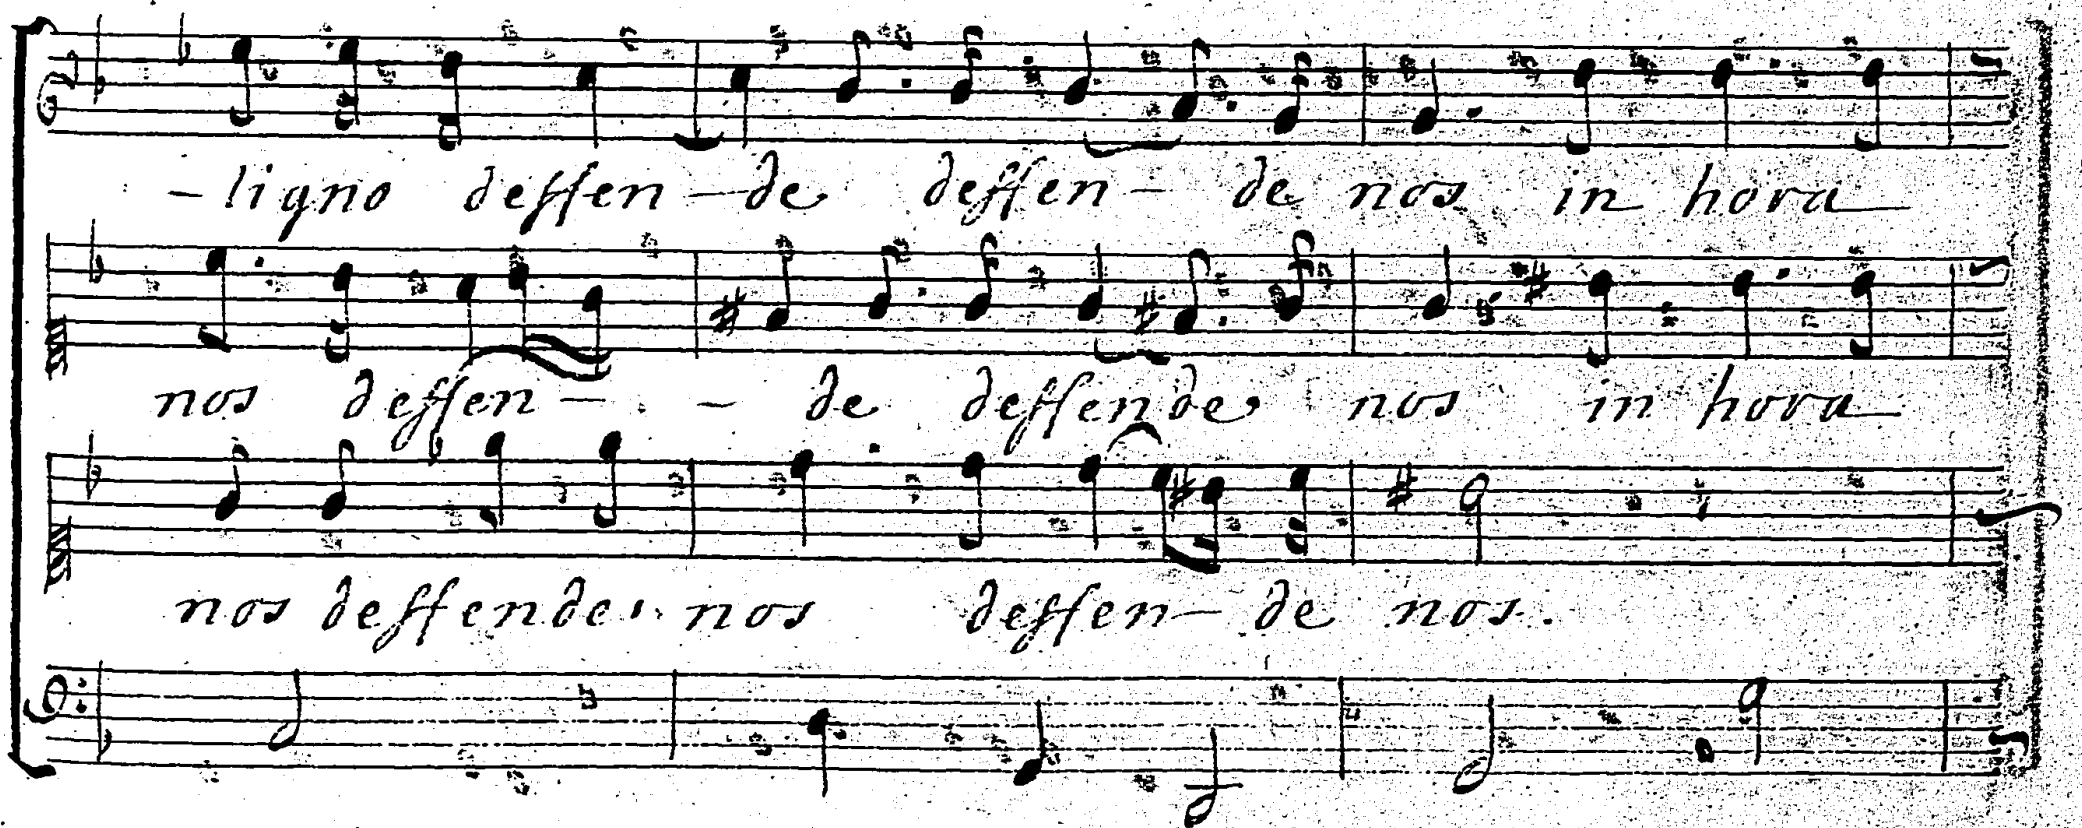 - ligno deffen - de deffen - de nos in hora
nos deffen - - de deffende nos in hora
nos deffende nos deffen - de nos.